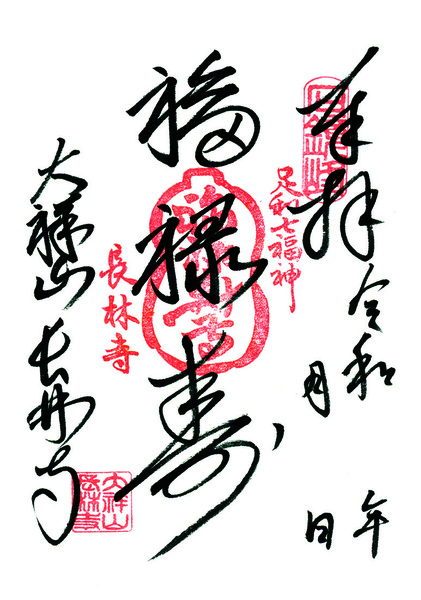 奉拝
令和 年 月 日
足利七福神
福禄寿
長林寺
大祥山 長林寺
大祥山
長林寺